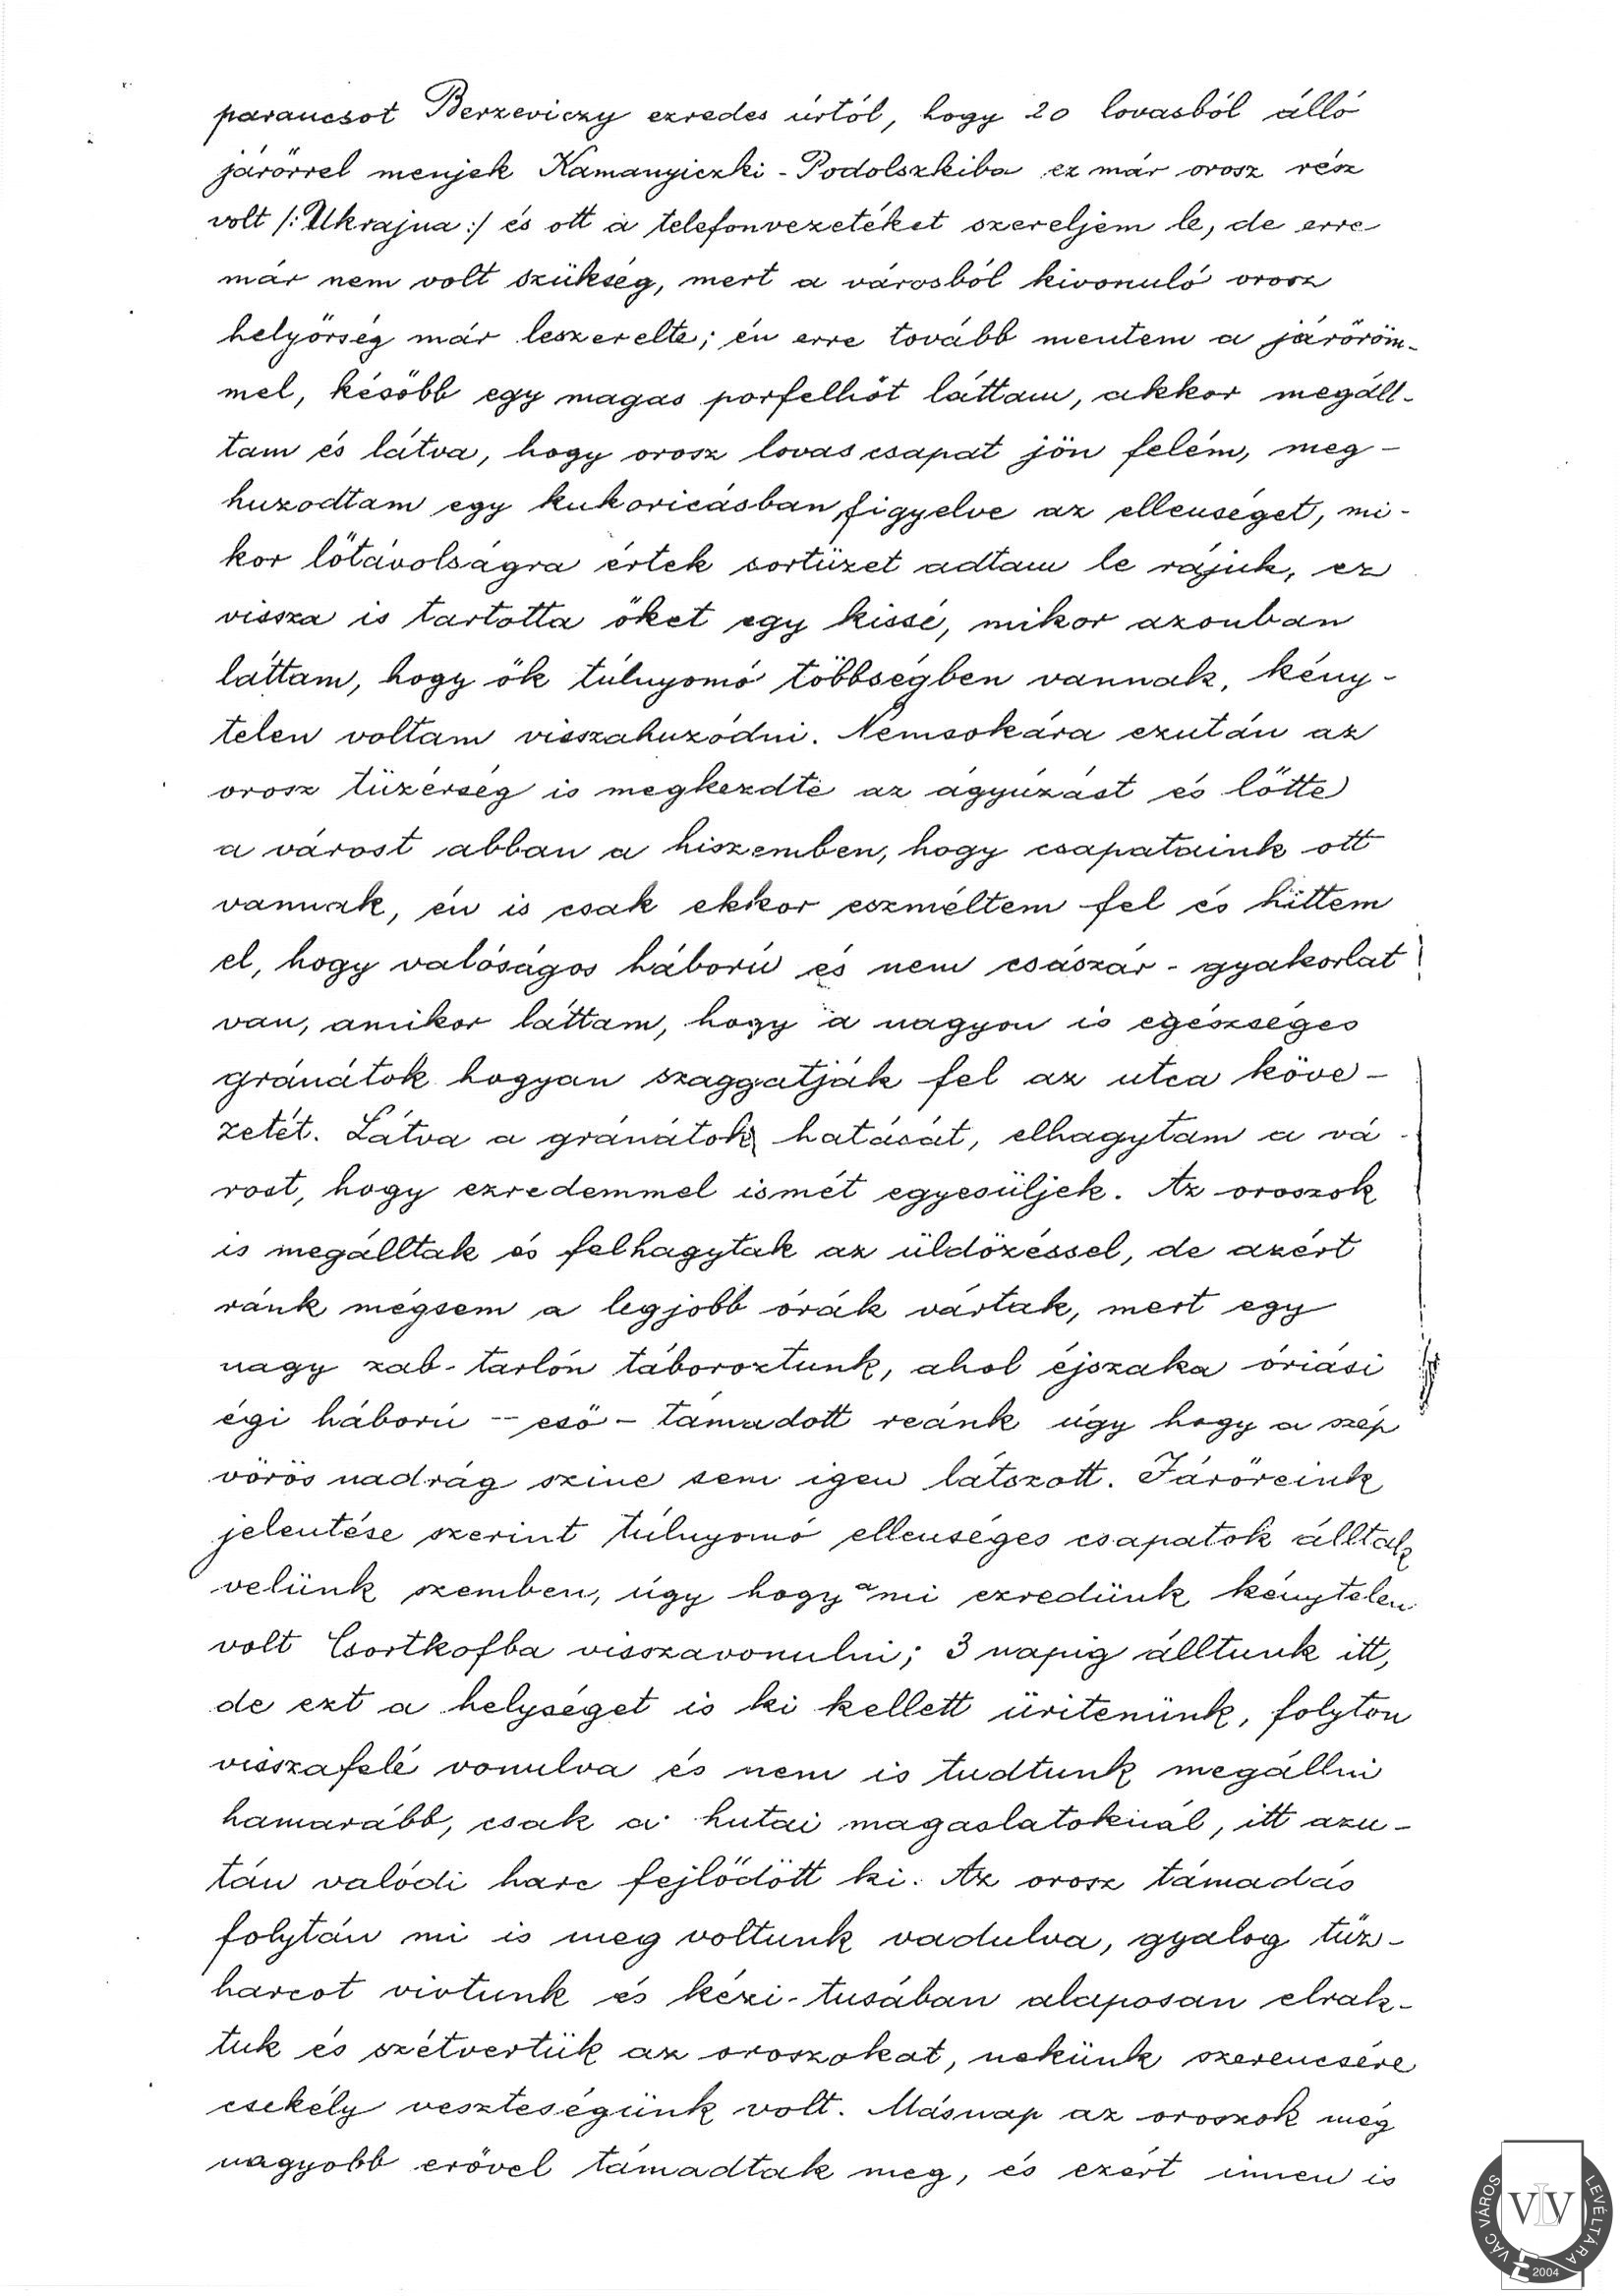 parancsot Berzeviczy ezredes úrtól, hogy 20 lovasból álló
járőrrel menjek Kamanyiczki - Podolszkiba ez már orosz rész
volt /: Ukrajna :/ és ott a telefonvezetéket szereljem le, de erre
már nem volt szükség, mert a városból kivonuló orosz
helyőrség már leszerelte; én erre tovább mentem a járőröm-
mel, később egy magas porfelhőt láttam, akkor megáll-
tam és látva, hogy orosz lovas csapat jön felém, meg-
huzodtam egy kukoricásban, figyelve az ellenséget, mi-
kor lőtávolságra értek sortüzet adtam le rájuk, ez
vissza is tartotta őket egy kissé, mikor azonban
láttam, hogy ők túlnyomó többségben vannak, kény-
telen voltam visszahuzódni. Nemsokára ezután az
orosz tüzérség is megkezdte az ágyúzást és lőtte
a várost abban a hiszemben, hogy csapataink ott
vannak, én is csak ekkor eszméltem fel és hittem
el, hogy valóságos háború és nem császár-gyakorlat
van, amikor láttam, hogy a nagyon is egészséges
gránátok hogyan szaggatják fel az utca köve-
zetét. Látva a gránátok hatását, elhagytam a vá-
rost, hogy ezredemmel ismét egyesüljek. Az oroszok
is megálltak és felhagytak az üldözéssel, de azért
ránk mégsem a legjobb órák vártak, mert egy
nagy zab-tarlón táboroztunk, ahol éjszaka óriási
égi háború - eső - támadott reánk úgy hogy a szép
vörös nadrág szine sem igen látszott. Járőreink
jelentése szerint túlnyomó ellenséges csapatok álltak
velünk szemben, úgy hogy a mi ezredünk kénytelen
volt Csortkofba visszavonulni; 3 napig álltunk itt,
de ezt a helységet is ki kellett üritenünk, folyton
visszafelé vonulva és nem is tudtunk megállni
hamarább, csak a hutai magaslatoknál, itt azu-
tán valódi harc fejlődött ki. Az orosz támadás
folytán mi is meg voltunk vadulva, gyalog tűz-
harcot vivtunk és kézi-tusában alaposan elrak-
tuk és szétvertük az oroszokat, nekünk szerencsére
csekély veszteségünk volt. Másnap az oroszok még
nagyobb erővel támadtak meg, és ezért innen is
VÁC VÁROS LEVÉLTÁRA
VLV
2004